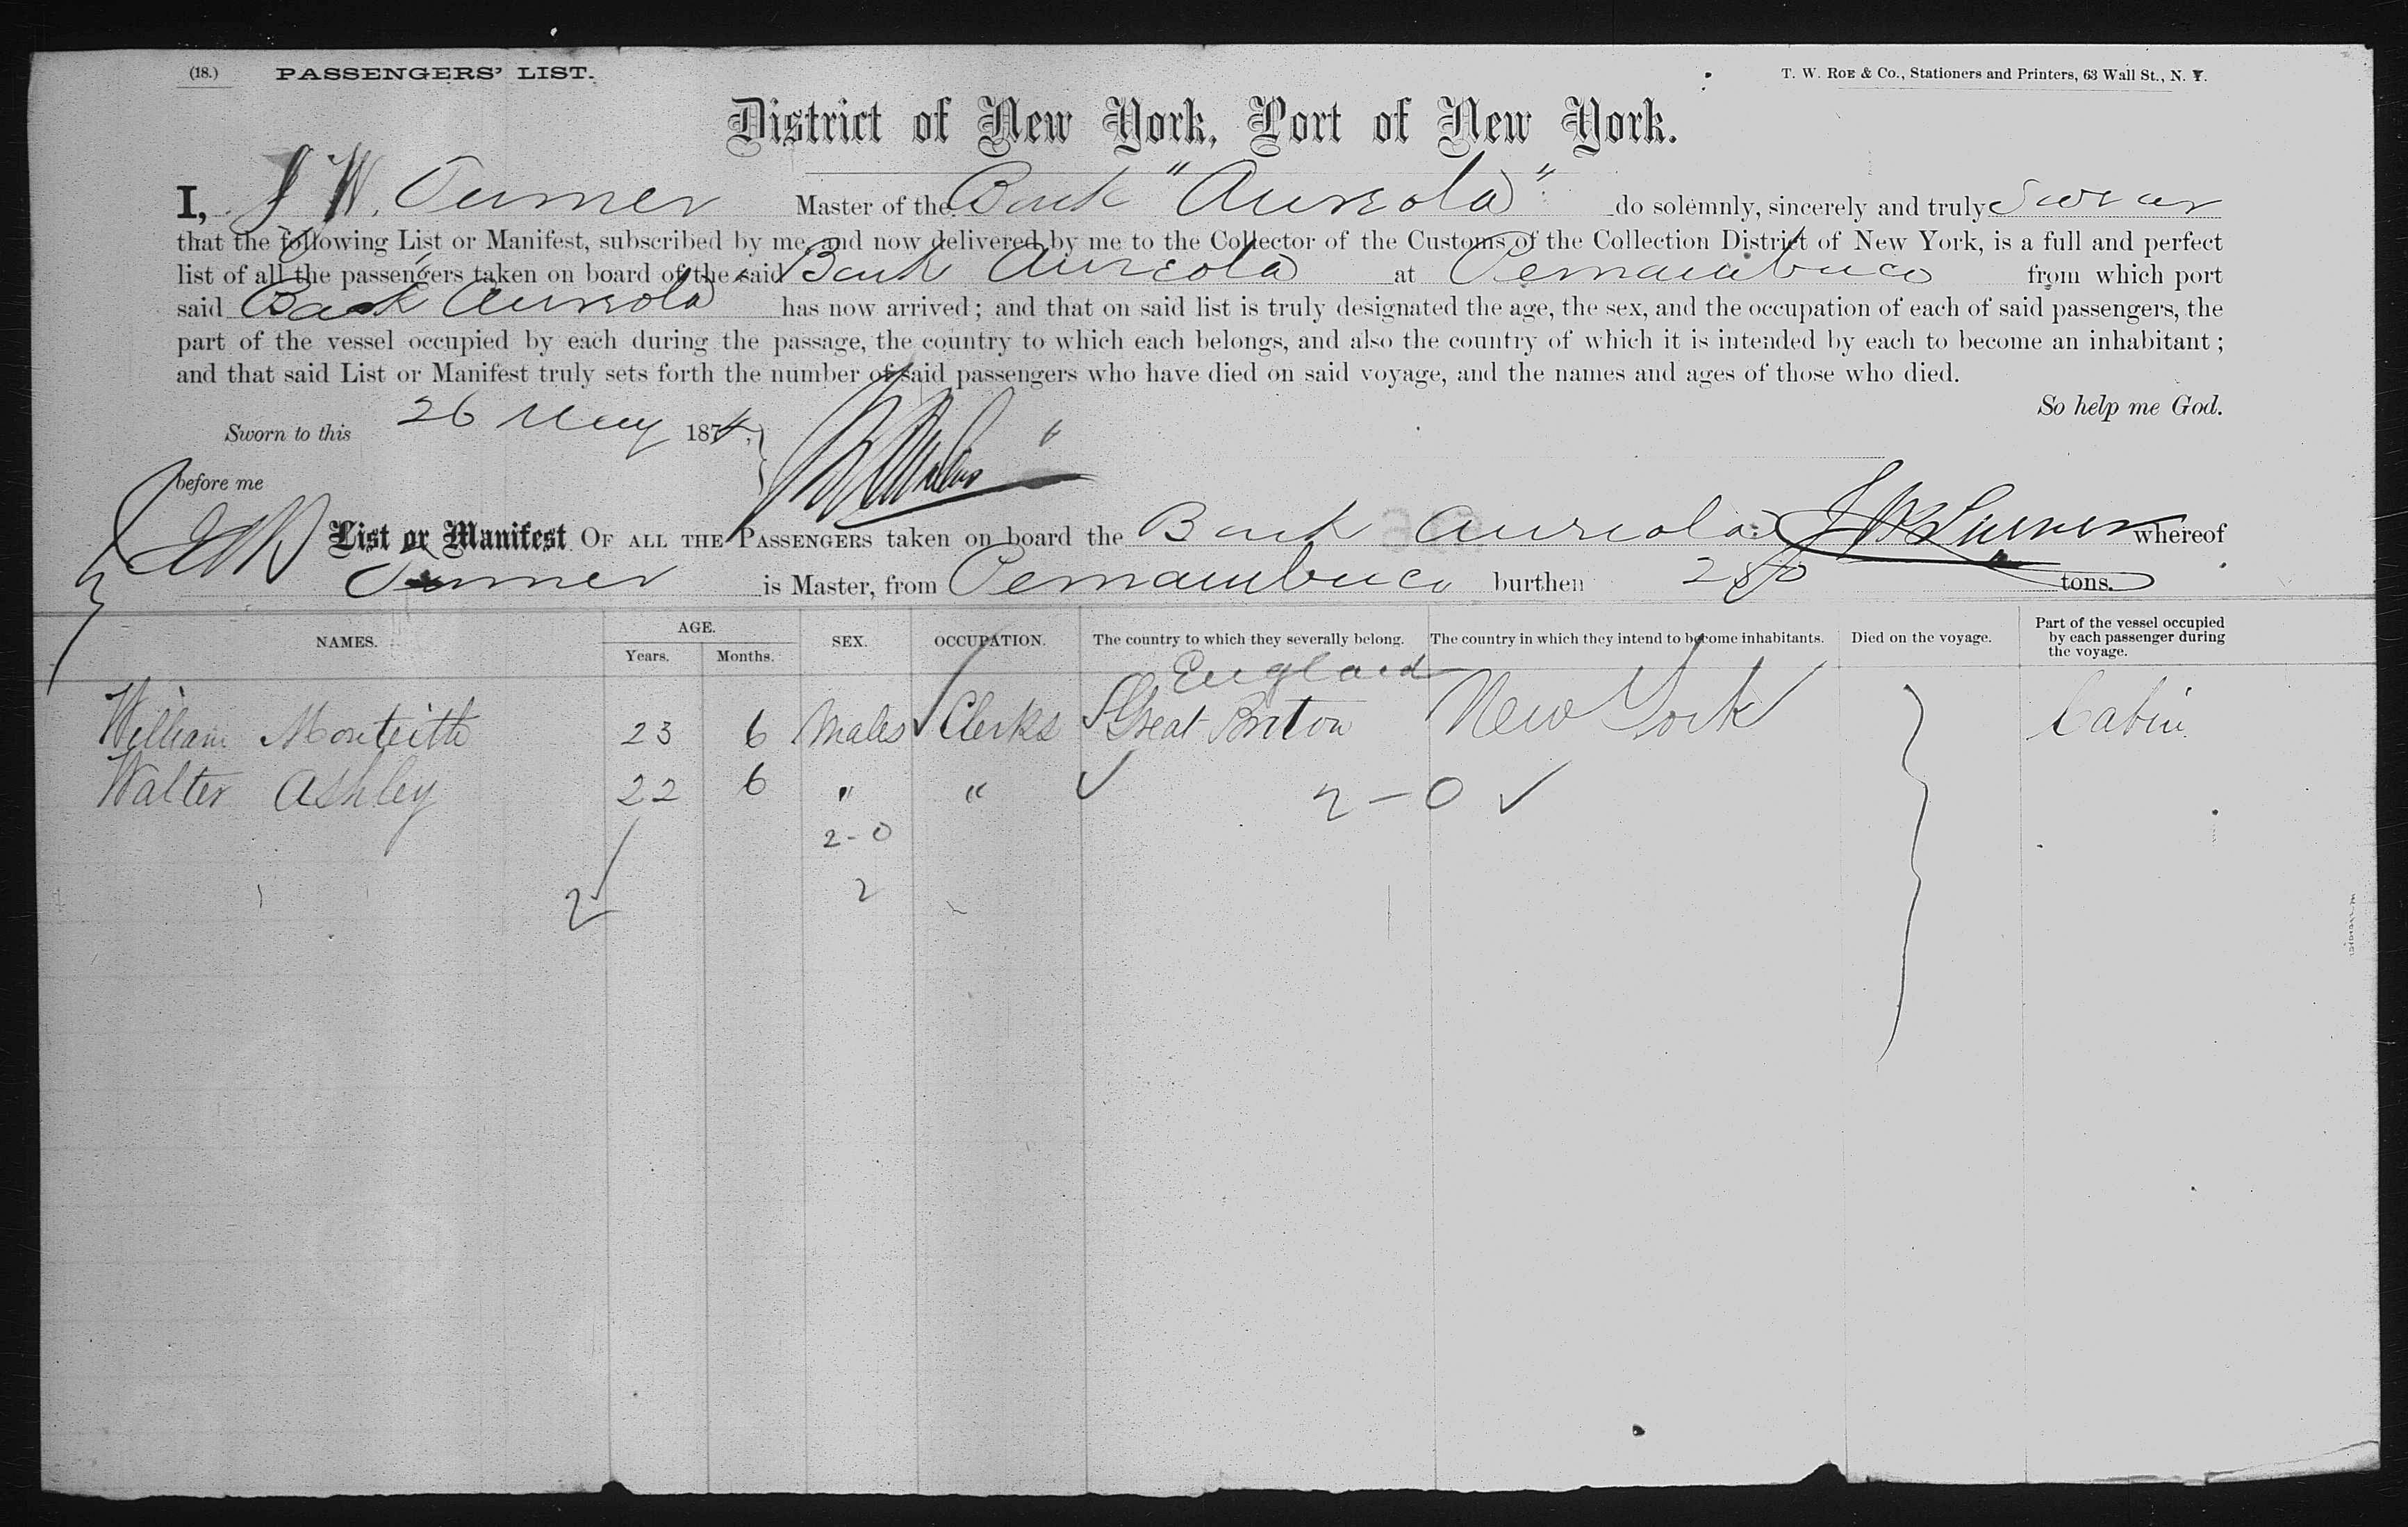 (18.) PASSENGERS' LIST. T. W. ROE & Co., Stationers and Printers, 63 Wall St., N. Y.
District of New York, Port of New York.
I, J W. Turner Master of the Bark "Aureola" do solemnly, sincerely and truly Swear
that the following List or Manifest, subscribed by me and now delivered by me to the Collector of the Customs of the Collection District of New York, is a full and perfect
list of all the passengers taken on board of the said Bark Aureola at Pernambuco from which port
said Bark Aureola has now arrived; and that on said list is truly designated the age, the sex, and the occupation of each of said passengers, the
part of the vessel occupied by each during the passage, the country to which each belongs, and also the country of which it is intended by each to become an inhabitant;
and that said List or Manifest truly sets forth the number of said passengers who have died on said voyage, and the names and ages of those who died.
So help me God.
Sworn to this 26 May 1874,
before me
List or Manifest OF ALL THE PASSENGERS taken on board the Bark Aureola J W Turner whereof
Turner is Master, from Pernambuco burthen 280 tons.
NAMES. AGE. Years. Months. SEX. OCCUPATION. The country to which they severally belong. The country in which they intend to become inhabitants. Died on the voyage. Part of the vessel occupied by each passenger during the voyage.
England
William Monteith 23 6 Males Clerks Great Briton New York Cabin
Walter Ashley 22 6 " " 2-0
2-0
2 2